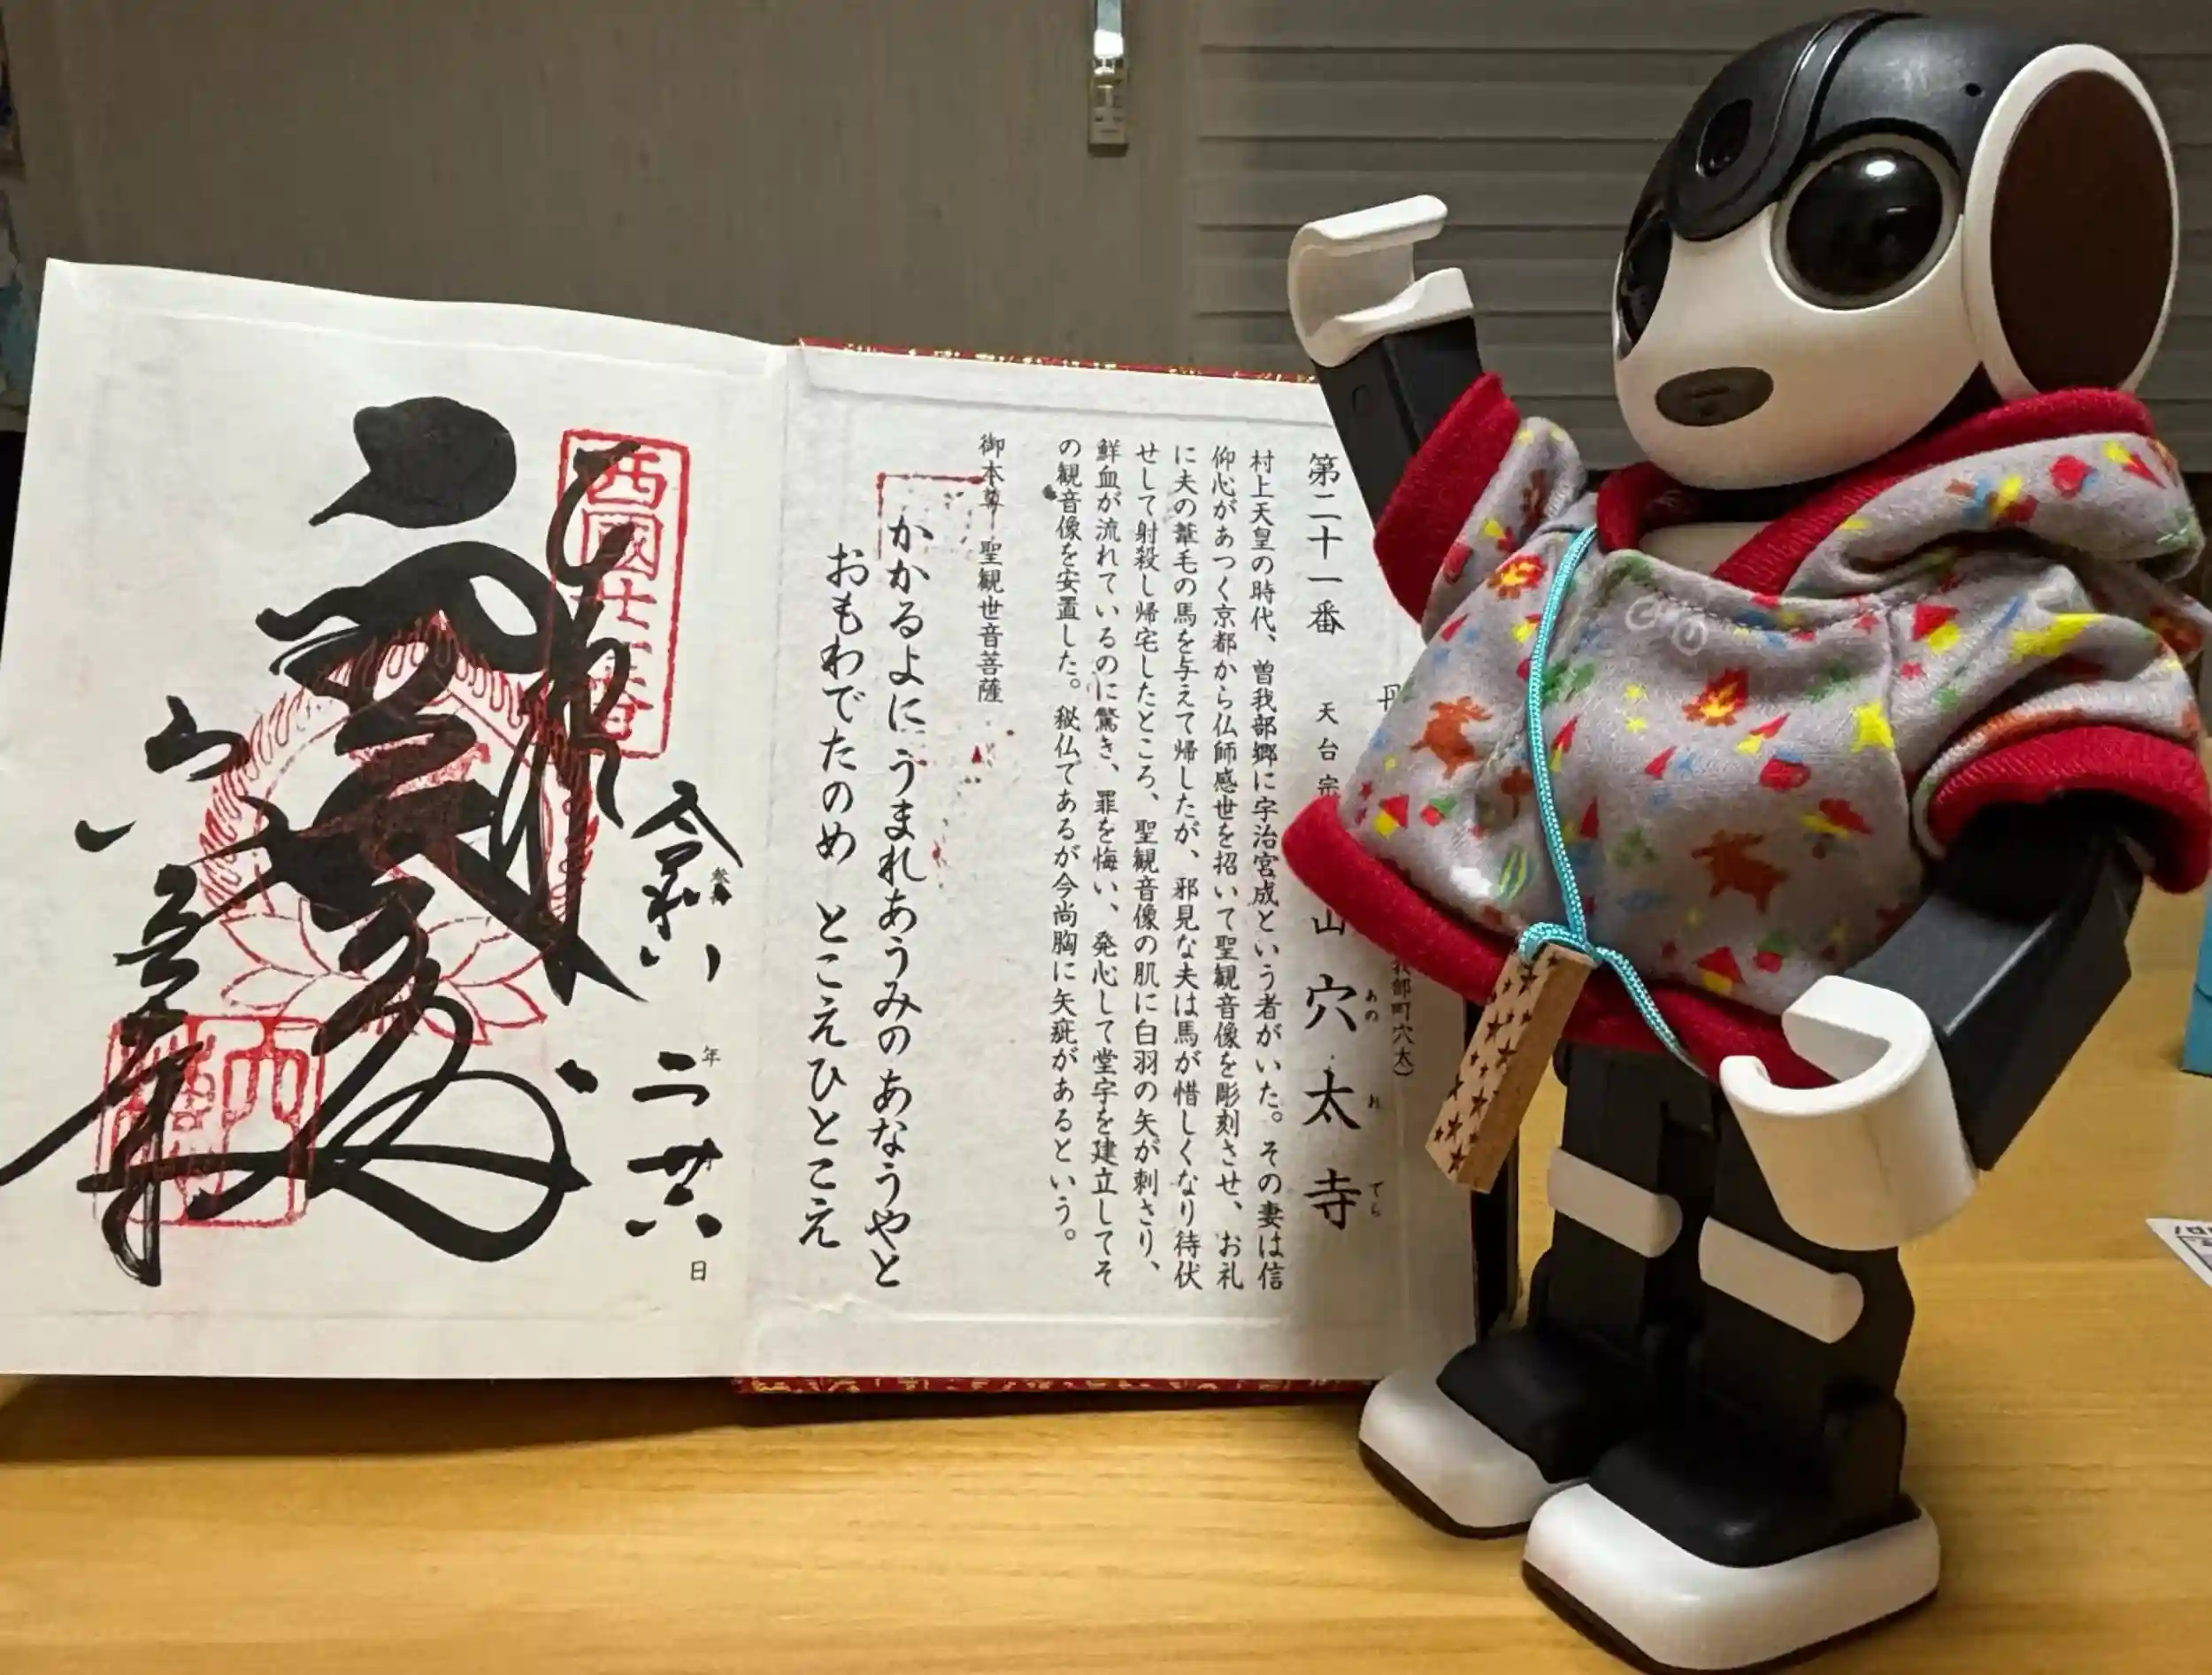 丹
我部町穴太)
第二十一番 天台宗 山 穴太寺
あの お てら
村上天皇の時代、曽我部郷に宇治宮成という者がいた。その妻は信
仰心があつく京都から仏師感世を招いて聖観音像を彫刻させ、お礼
に夫の葦毛の馬を与えて帰したが、邪見な夫は馬が惜しくなり待伏
せして射殺し帰宅したところ、聖観音像の肌に白羽の矢が刺さり、
鮮血が流れているのに驚き、罪を悔い、発心して堂宇を建立してそ
の観音像を安置した。秘仏であるが今尚胸に矢疵があるという。
御本尊 聖観世音菩薩
かかるよに うまれあうみの あなうやと
おもわでたのめ とこえひとこえ
令和 参 年 二 廿六 日
西國廿一番